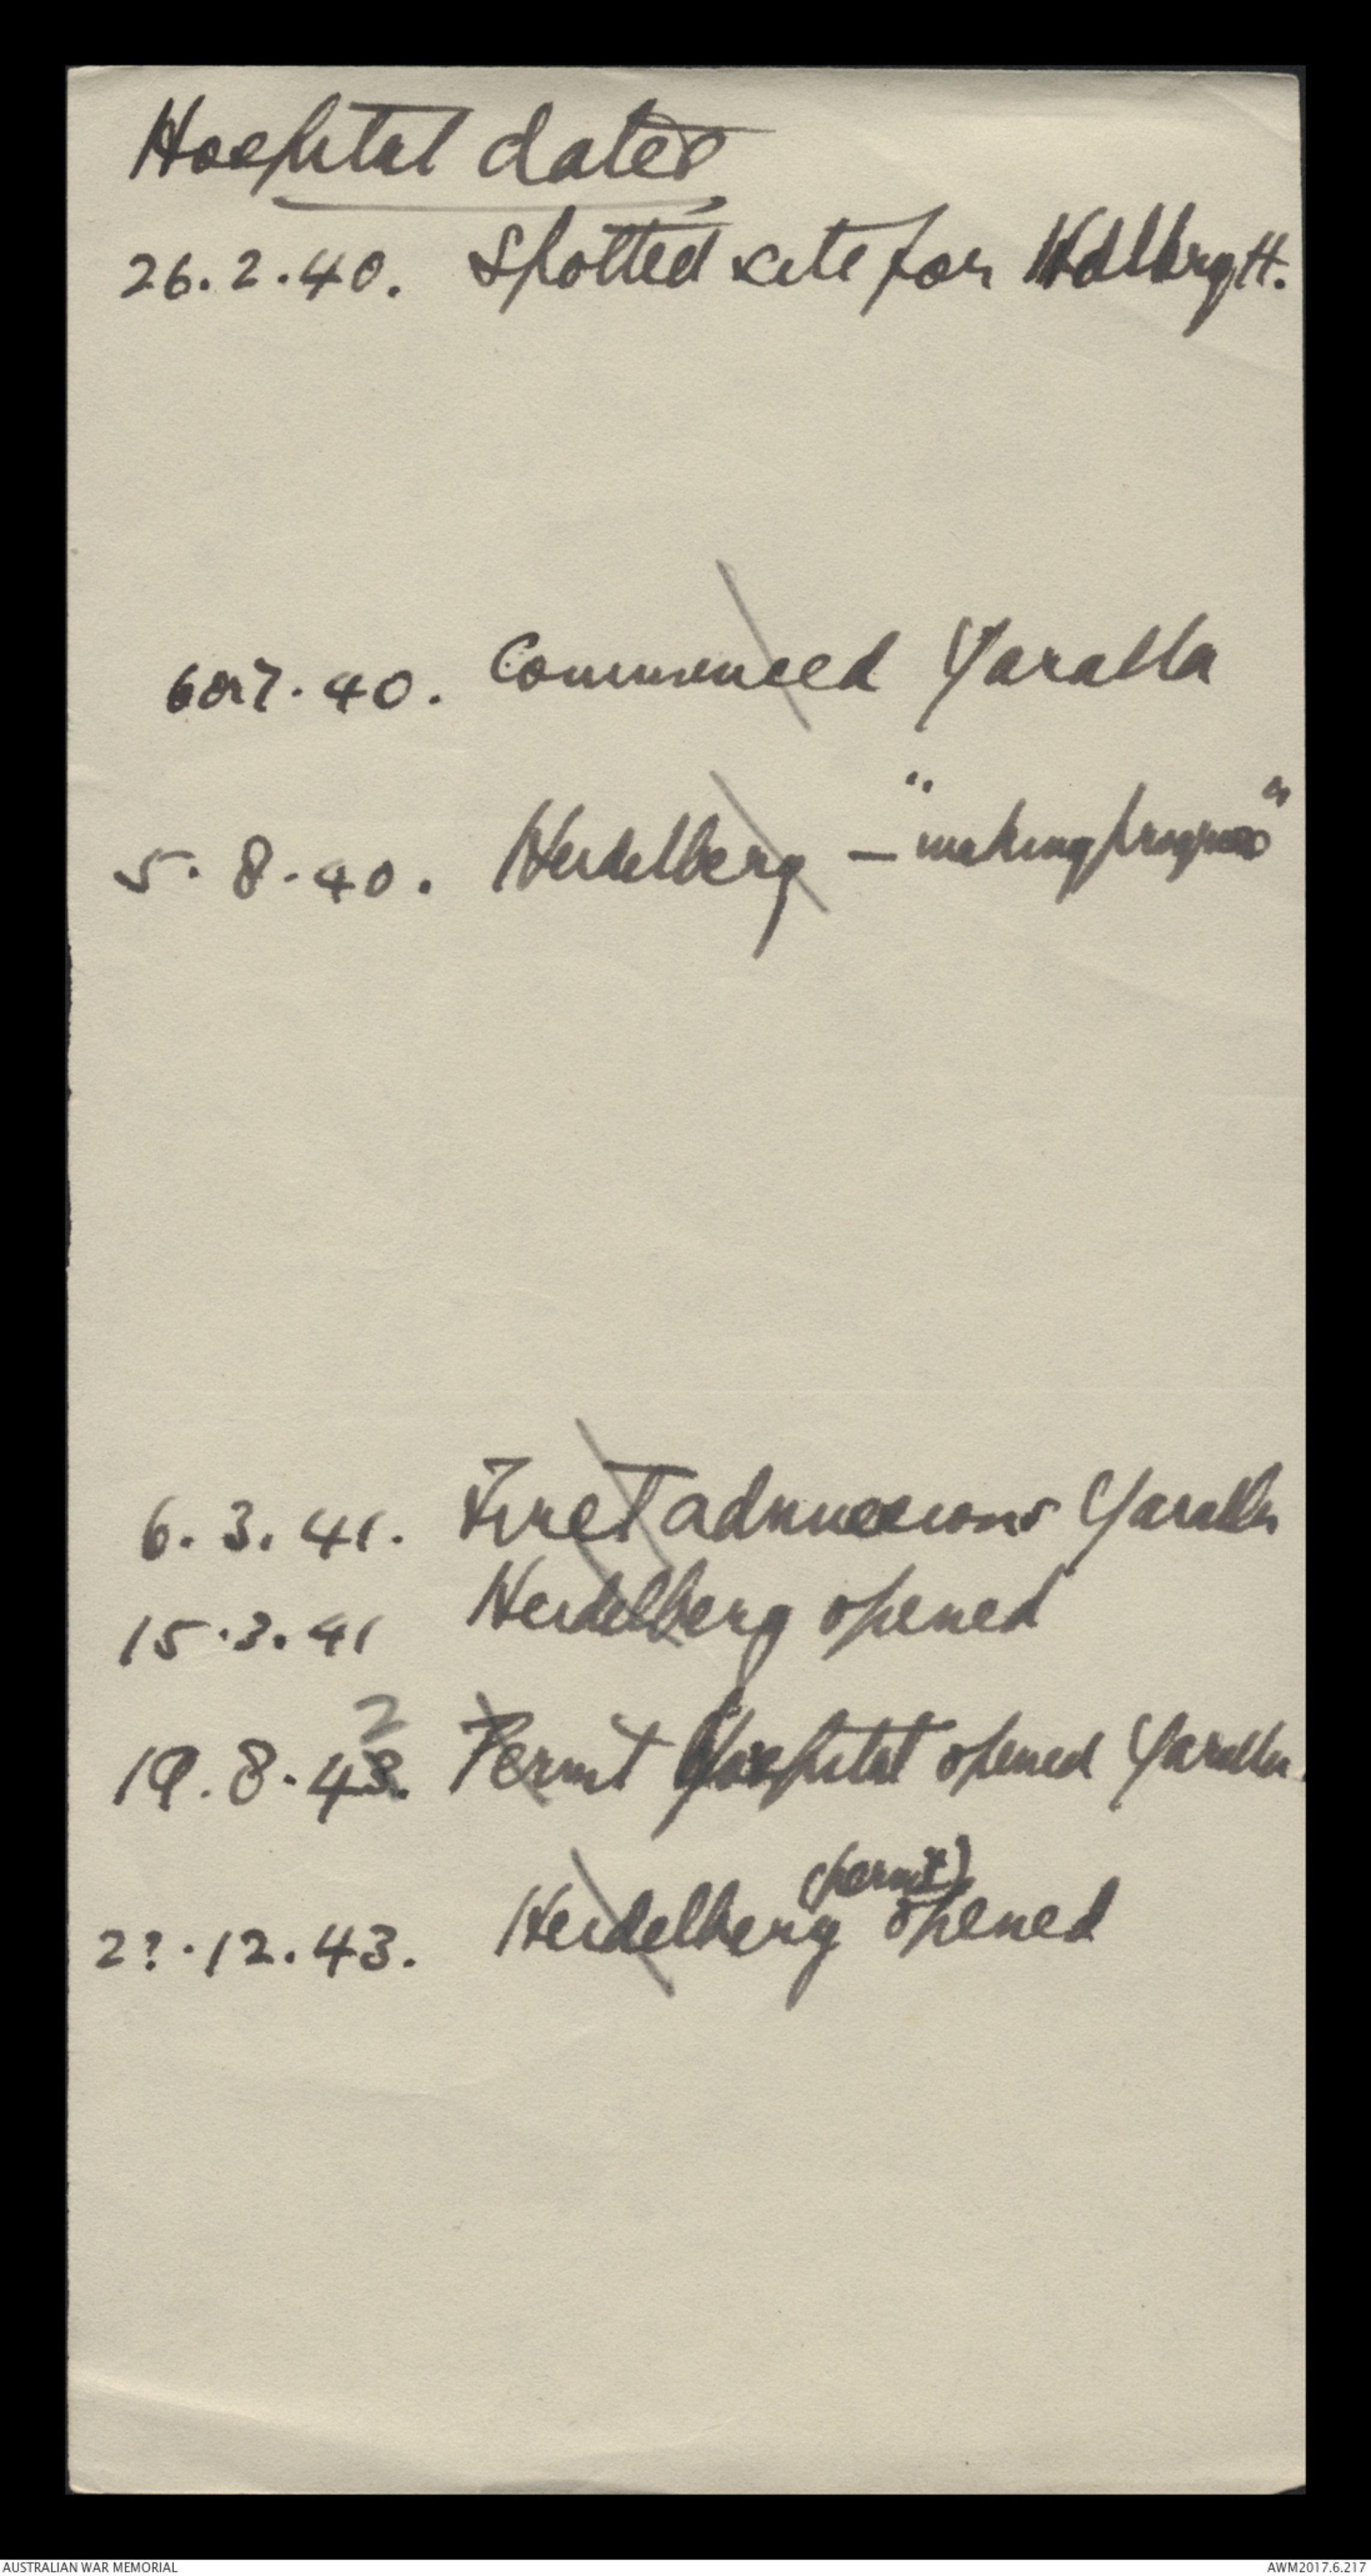 Hospital dates
26.2.40. Spotted site for Hdlbrg H.
6 or 7.40. Commenced Yaralla
5.8.40. Heidelberg — "making progress"
6.3.41. First admissions Yaralla
15.3.41 Heidelberg opened
2
19.8.43. Permt Hospital opened Yaralla.
(permt)
2?.12.43. Heidelberg opened
AUSTRALIAN WAR MEMORIAL
AWM2017.6.217